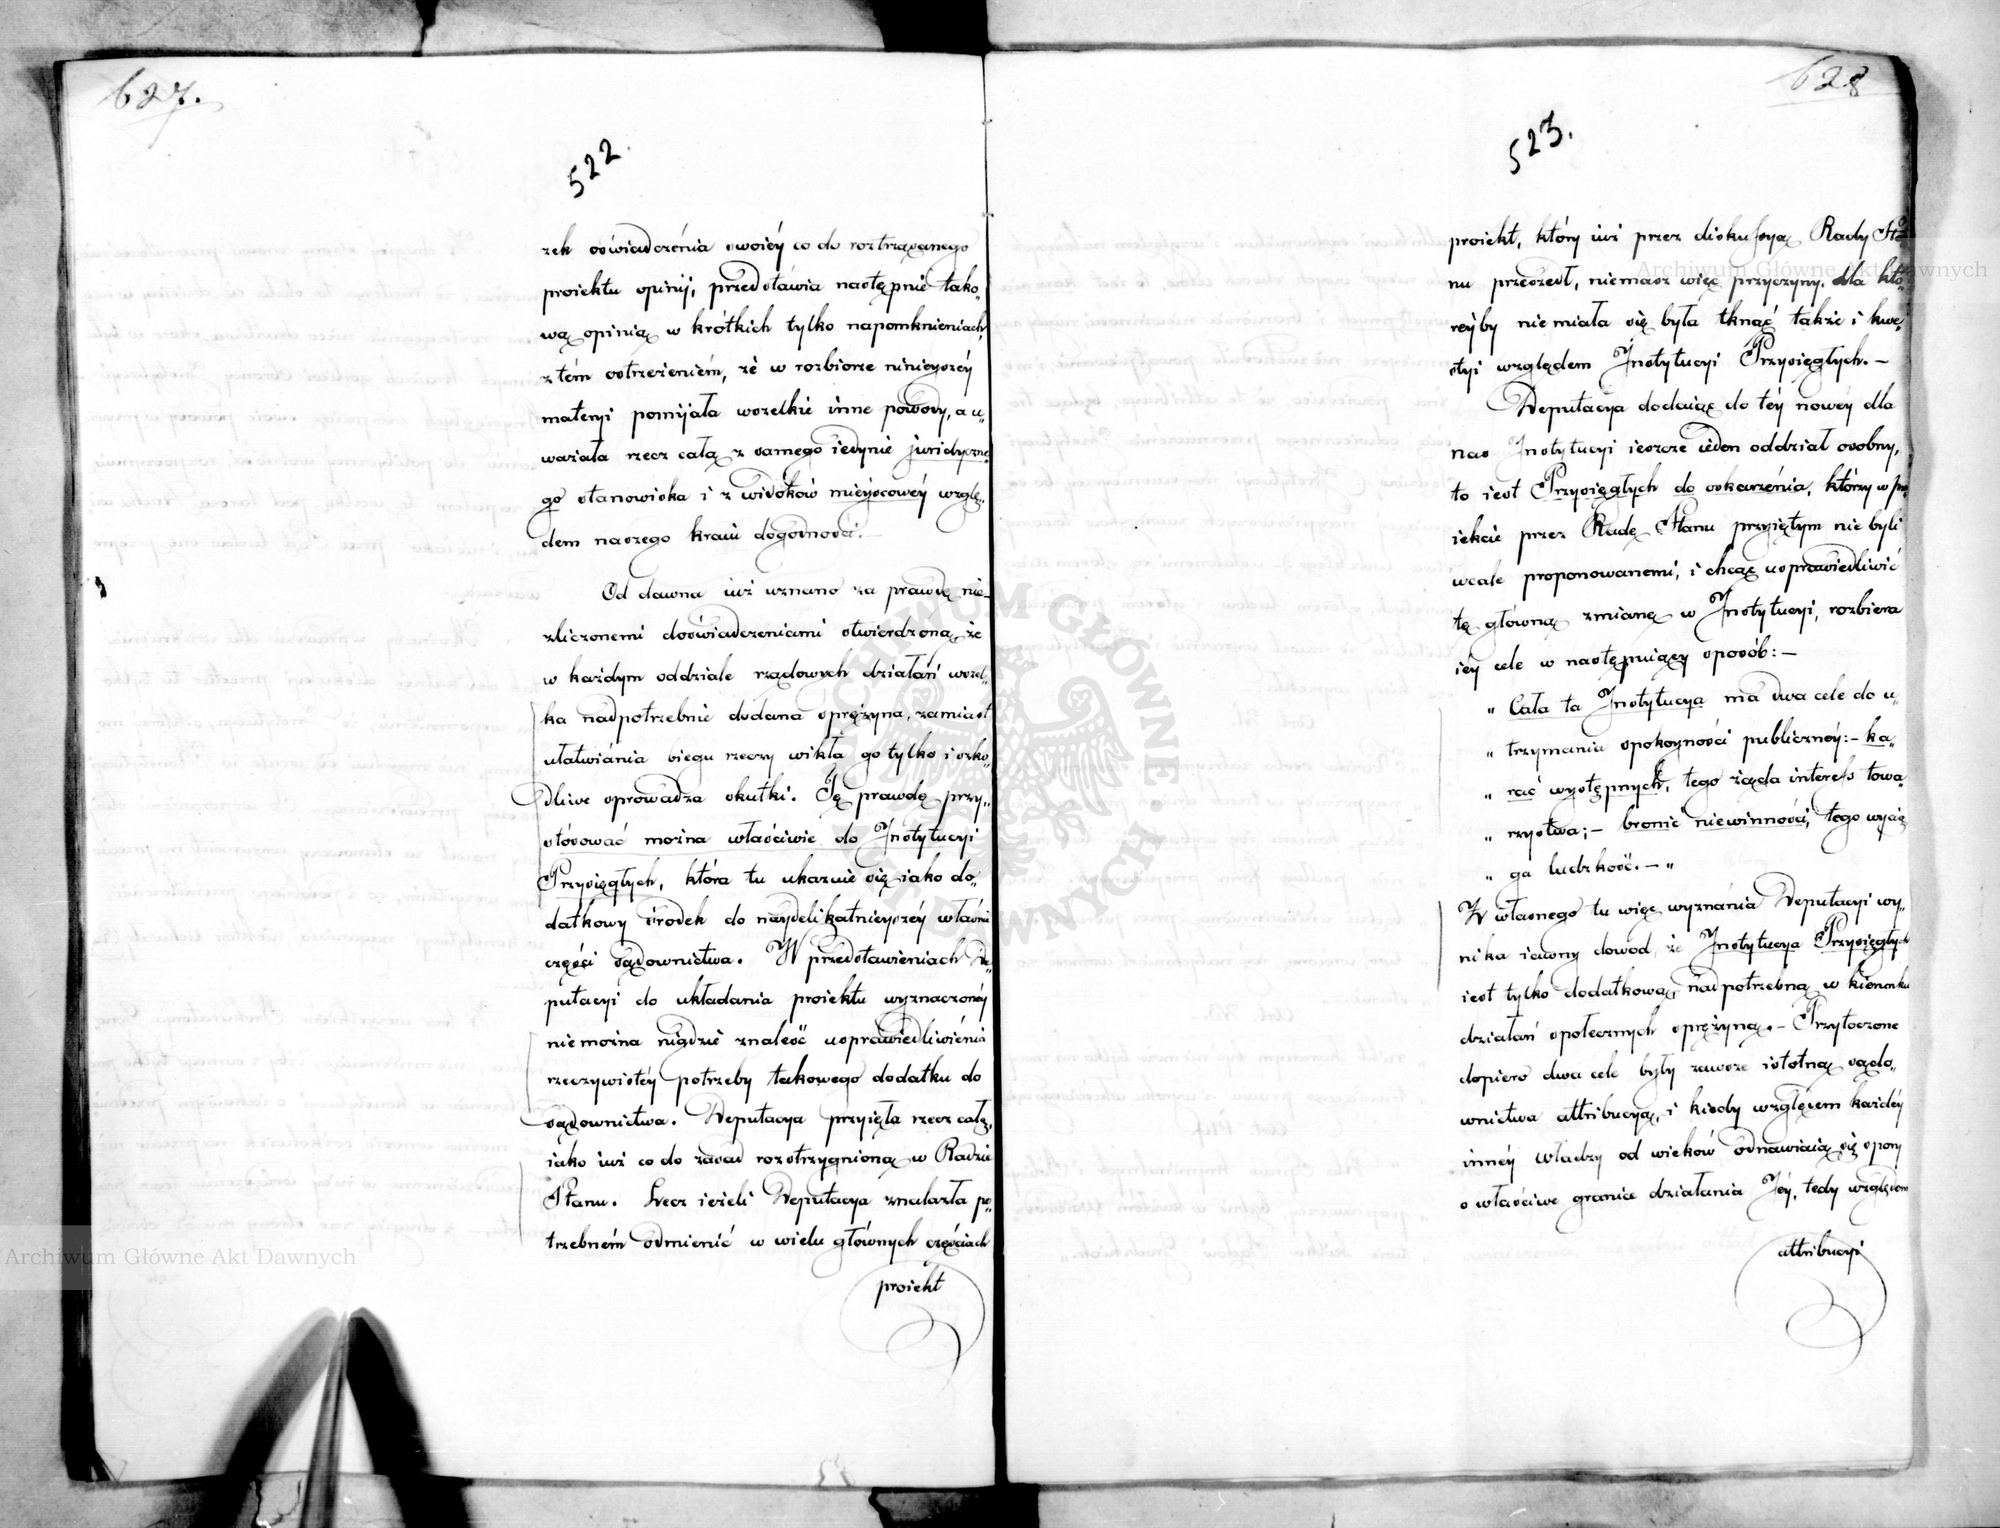 627.
522.
rek oświadczenia swoiéy co do roztrząsanego
proiektu opinij, przedstawia następnie tako„
wą opinią w krótkich tylko napomknieniach,
z tém ostrzeżeniem, że w rozbiorze ninieyszéy
materyi pomijała wszelkie inne powody, a u„
ważała rzecz całą z samego iedynie juridyczne„
go stanowiska i z widoków mieyscowéy wzglę„
dem naszego kraiu dogodności.
Od dawna iuż uznano za prawdę nie„
zliczonemi doświadczeniami stwierdzoną, że
w każdym oddziale rządowych działań wszel„
ka nadpotrzebnie dodana sprężyna, zamiast
ułatwiania biegu rzeczy wikła go tylko i szko„
dliwe sprowadza skutki. Tę prawdę przy„
stósować można właściwie do Instytucyi
Przysięgłych, która tu ukazuie się iako do„
datkowy środek do naydelikatnieyszéy właśnie
części sądownictwa. W przedstawieniach De„
putacyi do układania proiektu wyznaczonéy
niemożna nigdzie znaleść usprawiedliwienia
rzeczywistéy potrzeby takowego dodatku do
sądownictwa. Deputacya przyięła rzecz całą,
iako iuż co do zasad rozstrzygnioną w Radzie
Stanu. Lecz ieżeli Deputacya znalazła po„
trzebném odmienić w wielu głównych częściach
proiekt
628
523.
proiekt, który iuż przez diskussyą Rady Sta„
nu przeszedł, niemasz więc przyczyny, dla któ„
réyby niemiała się była tknąć także i kwe„
styi względem Instytucyi Przysięgłych. –
Deputacya dodaiąc do téy nowéy dla
nas Instytucyi ieszcze ieden oddział osobny,
to iest Przysięgłych do oskarżenia, którzy w pro„
iekcie przez Radę Stanu przyiętym nie byli
wcale proponowanemi, i chcąc usprawiedliwić
tę główną zmianę w Instytucyi, rozbiera
iéy cele w następuiący sposób: –
„ Cała ta Instytucya ma dwa cele do u„
„ trzymania spokoyności publicznéy: – ka„
„ rać występnych, tego żąda interess towa„
„ rzystwa; – bronić niewinności, tego wycią„
„ ga ludzkość. – „
Z własnego tu więc wyznania Deputacyi wy„
nika iawny dowód, że Instytucya Przysięgłych
iest tylko dodatkową, nadpotrzebną w kierunku
działań społecznych sprężyną. – Przytoczone
dopiero dwa cele były zawsze istotną sądo„
wnictwa attribucyą, i kiedy względem każdéy
innéy władzy od wieków odnawiaią się spory
o właściwe granice działania Jéy, tedy względem
attribucyi
Archiwum Główne Akt Dawnych
Archiwum Główne Akt Dawnych
ARCHIWUM GŁÓWNE AKT DAWNYCH